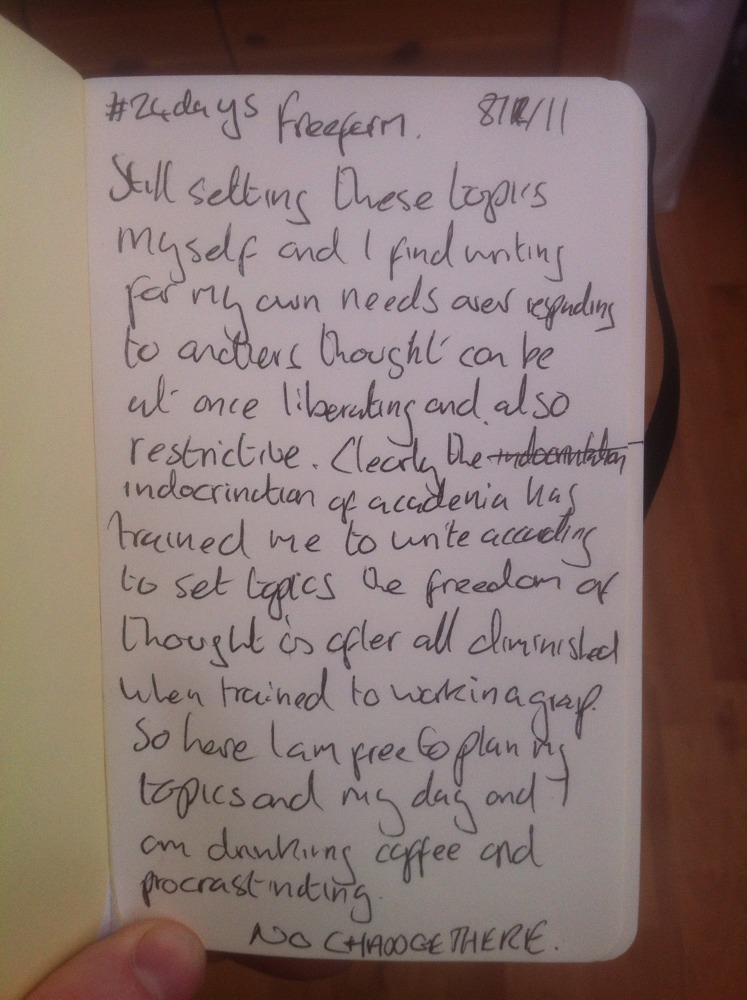 #24days freeform. 8/12/11
Still setting these topics
myself and I find writing
for my own needs over responding
to anothers thought can be
at once liberating and also
restrictive. Clearly the
indocrination of academia has
trained me to write according
to set topics the freedom of
thought is after all diminished
when trained to work in a group.
So here I am free to plan my
topics and my day and I
am drinking coffee and
procrastinating.
NO CHANGE THERE.